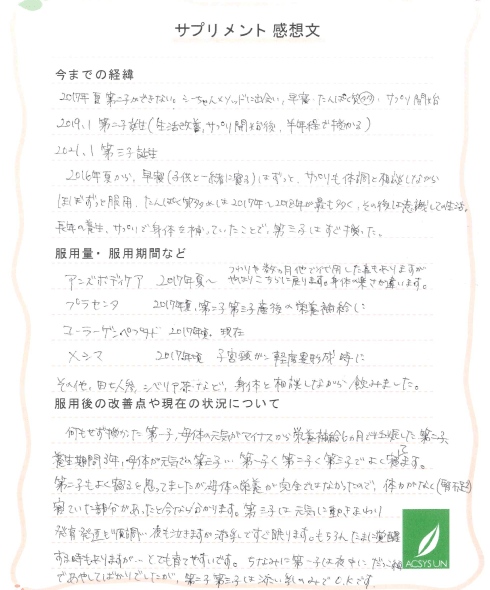 サプリメント 感想文
今までの経緯
2017年夏 第二子ができない。しーちゃんメソッドに出会い、早寝・たんぱく質 サプリ開始
2019.1 第二子誕生(生活改善,サプリ開始後、半年程で授かる)
2021.1 第三子誕生
2016年夏から、早寝(子供と一緒に寝る)はずっと、サプリも体調と相談しながら
ほぼずっと服用、たんぱく質多めは2017年~2018年が最も多く、その後は意識しての生活。
長年の養生、サプリで身体を補っていたことで、第三子はすぐ授かった。
服用量・服用期間など
アンズボディケア 2017年夏~ つわりや数ヶ月他ので代用した事もありますが
やはりこちらに戻ります。身体の楽さが違います。
プラセンタ 2017年夏、第二子第三子産後の栄養補給に
コラーゲンペプチド 2017年頃~現在
メシマ 2017年頃 子宮頸がん軽度異形成時に
その他、田七人参、シベリア茶など、身体と相談しながら飲みました。
服用後の改善点や現在の状況について
何もせず授かった第一子,母体の元気がマイナスから栄養補給6ヵ月で妊娠した第二子
養生期間3年,母体が元気な第三子 第一子く第二子く第三子でよく寝ます。
第二子もよく寝ると思ってましたが,母体の栄養が完全ではなかったので、体力がなく
寝ていた部分があったと今なら分かります。第三子は元気に動きまわり
発育発達も順調。夜も泣きますが添乳ですぐ眠ります。もちろんたまに覚醒
する時もありますが…とても育てやすいです。ちなみに第一子は夜中にだっこ
であやしてばかりでしたが、第二子第三子は添い乳のみでO.Kです
ACSYSUN